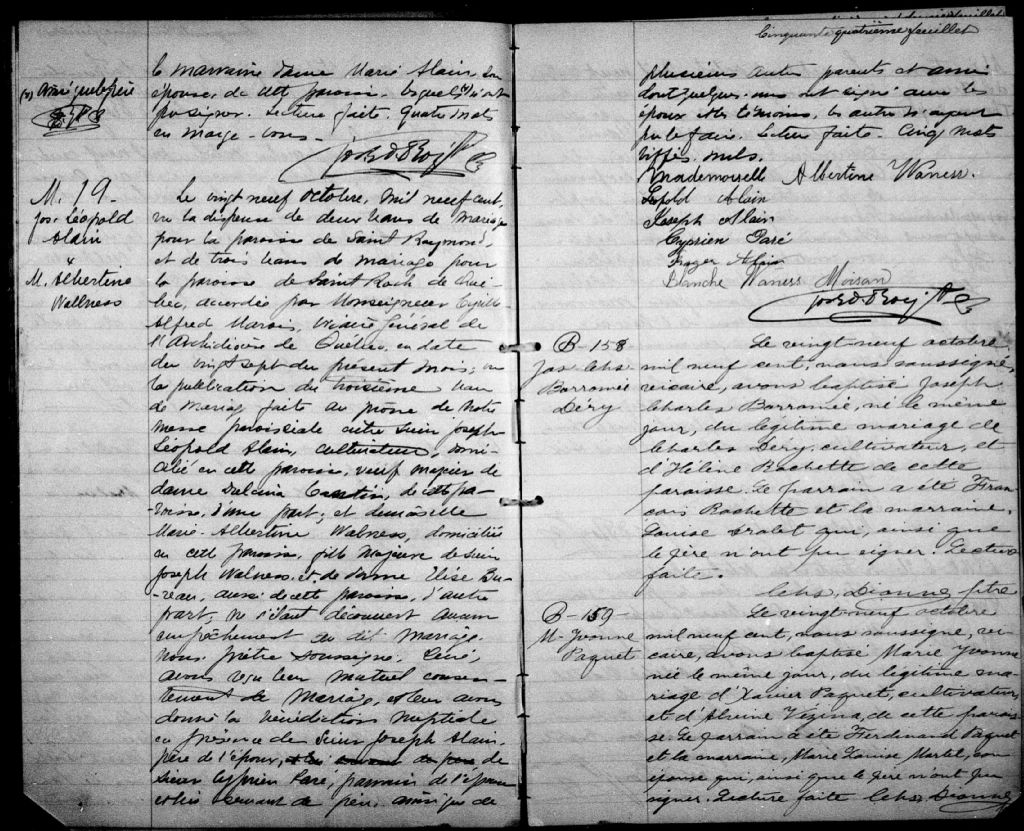 la marraine dame Marie Alain son
épouse, de cette paroisse. lesquels n'ont
pu signer. Lecture faite. Quatre mots
en marge bons.
M. 19.
Jos. Léopold
Alain
&
M. Albertine
Walness
Le vingt neuf octobre, mil neuf cent,
vu la dispense de deux bans de mariage
pour la paroisse de Saint Raymond,
et de trois bans de mariage pour
la paroisse de Saint Roch de Qué-
bec, accordés par Monseigneur Cyrille
Alfred Marois, Vicaire Général de
l'Archidiocèse de Québec, en date
du vingt sept du présent mois; vu
la publication du troisième ban
de mariage faite au prône de notre
messe paroissiale entre Sieur Joseph
Léopold Alain, cultivateur, domi-
cilié en cette paroisse, veuf majeur de
dame Dulcina Cantin, de cette pa-
roisse, d'une part; et demoiselle
Marie-Albertine Walness, domiciliée
en cette paroisse, fille majeure de Sieur
Joseph Walness et de dame Elise Bu-
reau, aussi de cette paroisse, d'autre
part; ne s'étant découvert aucun
empêchement au dit mariage,
nous, prêtre soussigné, Curé,
avons reçu leur mutuel consen-
tement de mariage, et leur avons
donné la bénédiction nuptiale
en présence de Sieur Joseph Alain,
père de l'époux, de
Sieur Cyprien Paré, parrain de l'épouse
et lui servant de père, ainsi que de
Cinquante quatrième feuillet
plusieurs autres parents et amis
dont quelques-uns ont signé avec les
époux et les témoins, les autres n'ayant
pu le faire. Lecture faite. Cinq mots
biffés nuls.
Mademoiselle Albertine Waness.
Lépold Alain
Joseph Alain
Cyprien Paré
Alain
Blanche Waness Moisan
B-158
Jos. Chs.
Borromée
Déry
Le vingt neuf octobre
mil neuf cent, nous soussigné,
vicaire, avons baptisé Joseph
Charles Borromée, né le même
jour, du légitime mariage de
Charles Déry, cultivateur, et
d'Héline Rochette de cette
paroisse. Le parrain a été Fran-
cois Rochette et la marraine,
Louise Drolet qui, ainsi que
le père n'ont pu signer. Lecture
faite.
Chs. Dionne, ptre
B-159
M-Yvonne
Paquet
Le vingt neuf octobre
mil neuf cent, nous soussigné, vi-
caire, avons baptisé Marie Yvonne
née le même jour, du légitime ma-
riage d'Xavier Paquet, cultivateur,
et d'Alvine Vézina, de cette parois-
se. Le parrain a été Ferdinand Paquet
et la marraine, Marie Louise Martel, son
épouse qui, ainsi que le père n'ont pu
signer. Lecture faite Chs. Dionne